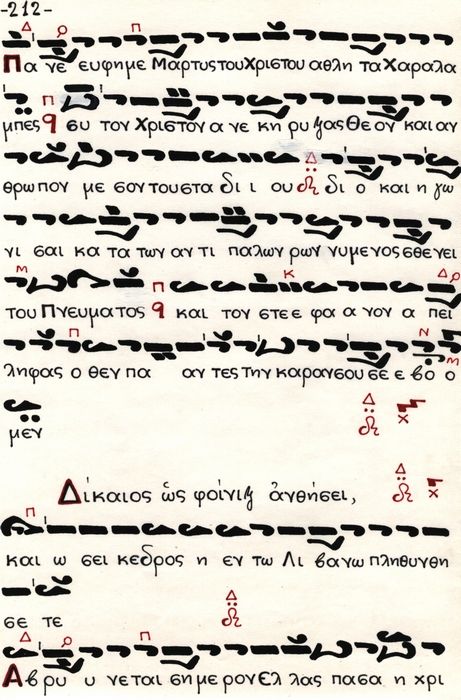 -212-
Πα νε ευφημε Μαρτυς του Χριστου αθλη τα Χαραλα
μπες συ τον Χριστον α νε κη ρυ ψας Θε ον και αν
θρωπον με σον του στα δι ι ου δι ο και η γω
νι σαι κα τα των αν τι παλων ρων νυμενος σθενει
του Πνευματος και τον στε ε φα α νον α πει
ληφας ο θεν πα αν τες την καραν σου σε ε βο ο
μεν
Δίκαιος ὡς φοίνιξ ἀνθήσει,
και ω σει κεδρος η εν τω Λι βανω πληθυνθη
σε τε
Αβρυ υ νεται σημερον Ελ λας πασα η χρι